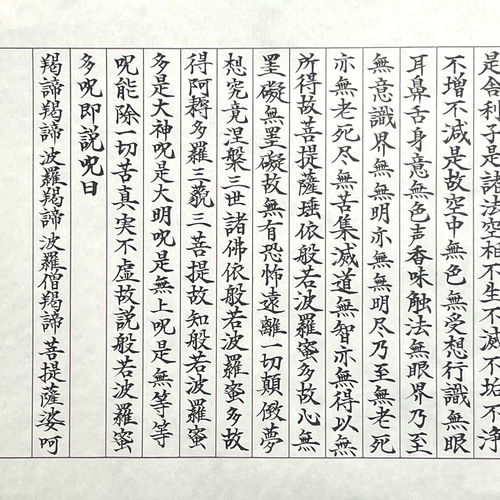 是舎利子是諸法空相不生不滅不垢不浄
不增不減是故空中無色無受想行識無眼
耳鼻舌身意無色声香味触法無眼界乃至
無意識界無無明亦無無明尽乃至無老死
亦無老死尽無苦集滅道無智亦無得以無
所得故菩提薩埵依般若波羅蜜多故心無
罣礙無罣礙故無有恐怖遠離一切顛倒夢
想究竟涅槃三世諸佛依般若波羅蜜多故
得阿耨多羅三藐三菩提故知般若波羅蜜
多是大神呪是大明呪是無上呪是無等等
呪能除一切苦真実不虚故説般若波羅蜜
多呪即説呪曰
羯諦羯諦波羅羯諦波羅僧羯諦菩提薩婆呵